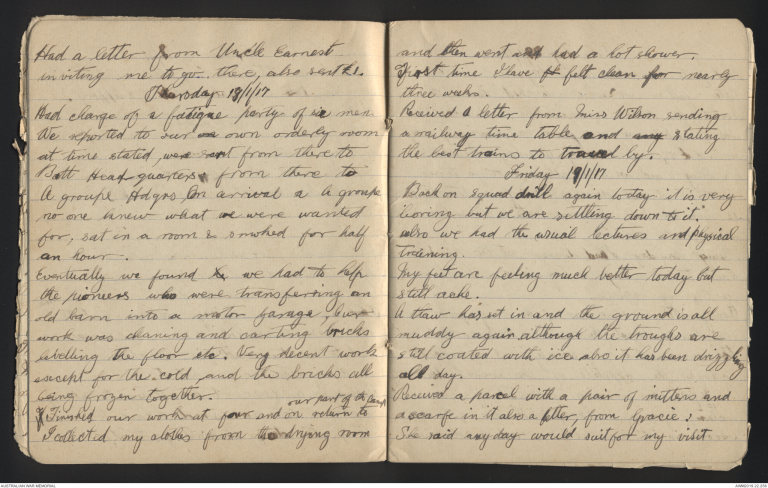 Had a letter from Uncle Earnest
inviting me to go there, also sent £1.
Thursday 18/1/17
Had charge of a fatigue party of six men
We reported to our own orderly room
at time stated were sent from there to
Batt Head quarters from there to
A groupe Hdqrs, on arrival a A groupe
no one knew what we were wanted
for, sat in a room & smoked for half
an hour.
Eventually we found we had to help
the pioneers who were transferring an
old barn into a motor garage, Our
work was cleaning and carting bricks
levelling the floor etc. Very decent work
except for the cold and the bricks all
being frozen together.
our part of the camp
Finished our work at four and on return to
I collected my clothes from the drying room
and then went and had a hot shower.
First time I have felt clean for nearly
three weeks.
Received a letter from Miss Wilson sending
a railway time table and stating
the best trains to travel by.
Friday 19/1/17
Back on squad drill again today it is very
boring but we are sittling down to it,
also we had the usual lectures and physical
training.
My feet are feeling much better today but
still ache.
A thaw has set in and the ground is all
muddy again although the troughs are
still coated with ice also it has been drizzling
all day.
Received a parcel with a pair of mittens and
a scarfe in it also a letter, from Gracie,
She said any day would suit for my visit
AUSTRALIAN WAR MEMORIAL